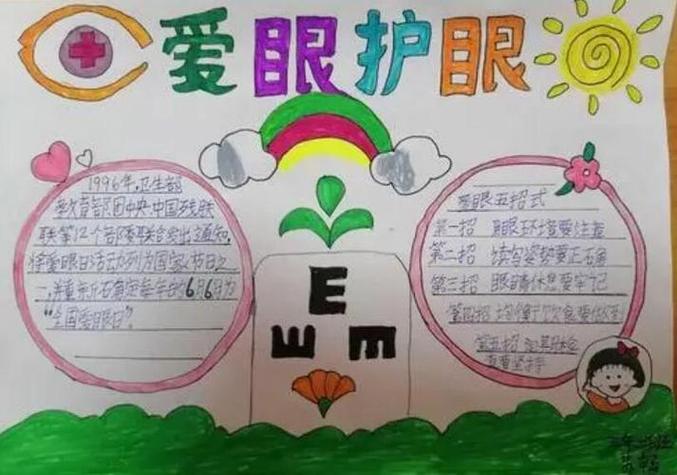 爱眼护眼
1996年,卫生部
教育部、团中央、中国残联
联等12个部委联合发出通知,
将爱眼日活动列为国家节日之
一,并重新确定每年的6月6日为
"全国爱眼日"。
E
E
E
爱眼五招式
第一招 用眼环境要注意
第二招 读写姿势要正确
第三招 眼睛休息要牢记
第四招 均衡饮食要做到
第五招 定期检
查要坚持